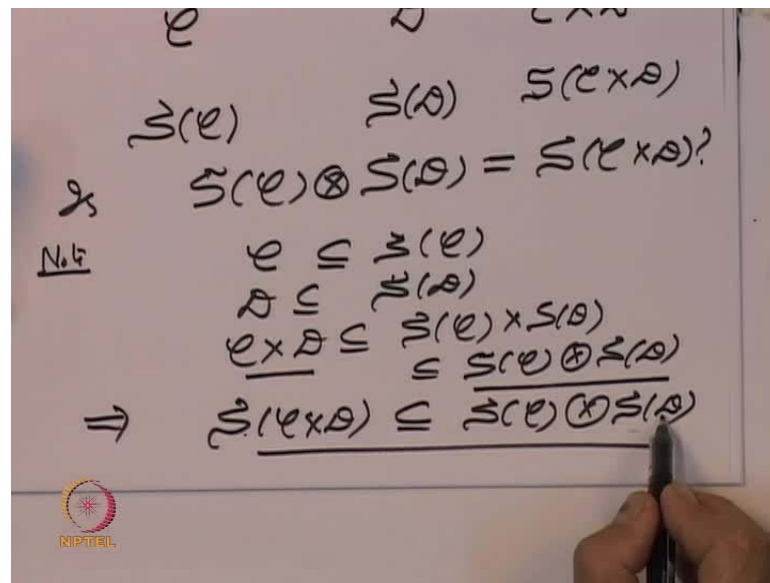 𝒞 𝒟 𝒞 × 𝒟
S(𝒞) S(𝒟) S(𝒞 × 𝒟)
Is S(𝒞) ⊗ S(𝒟) = S(𝒞 × 𝒟)?
Note 𝒞 ⊆ S(𝒞)
𝒟 ⊆ S(𝒟)
𝒞 × 𝒟 ⊆ S(𝒞) × S(𝒟)
⊆ S(𝒞) ⊗ S(𝒟)
⇒ S(𝒞 × 𝒟) ⊆ S(𝒞) ⊗ S(𝒟)
NPTEL